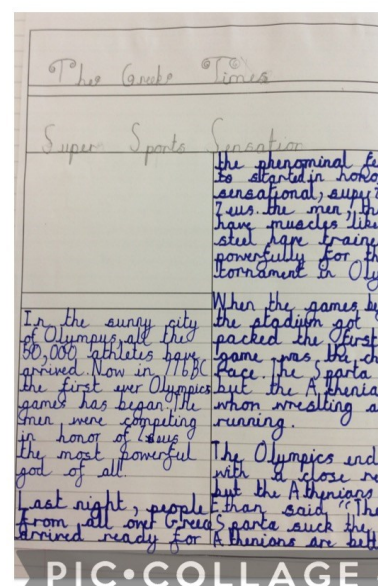 The Greeks Times
Super Sports Sensation
In the sunny city
of Olympus, all the
50,000 athletes have
arrived. Now in 776BC
the first ever Olympics
games has began. The
men were competing
in honor of Zeus
the most powerful
god of all.
Last night, people
from all over Greea
arrived ready for
the phenominal
to started in hono
sensational, supy
Zeus. the men, th
have muscles like
steel have traine
powerfully for th
tornament in Oly
When the games be
the stadium got
packed the first
game was the ch
race. The Sparta
but the Athenia
whon wrestling a
running.
The Olympics end
with a close re
but the Athenians
Ethan said "The
Sparta suck the
Athenians are bett
PIC•COLLAGE